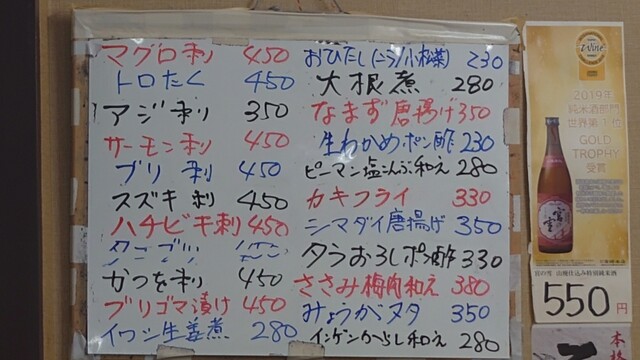 マグロ刺 450
トロたく 450
アジ刺 350
サーモン刺 450
ブリ刺 450
スズキ刺 450
ハチビキ刺 450
かつを刺 450
ブリゴマ漬け 450
イワシ生姜煮 280
おひたし(ニラ/小松菜) 230
大根煮 280
なまず唐揚げ 350
生わかめポン酢 230
ピーマン塩こんぶ和え 280
カキフライ 330
シマダイ唐揚げ 350
タラおろしポン酢 330
ささみ梅肉和え 380
みょうがタタ 350
インゲンからし和え 280
2019年
純米酒部門
世界第1位
GOLD
TROPHY
受賞
宮の雪 山廃仕込み特別純米酒
550円
本格